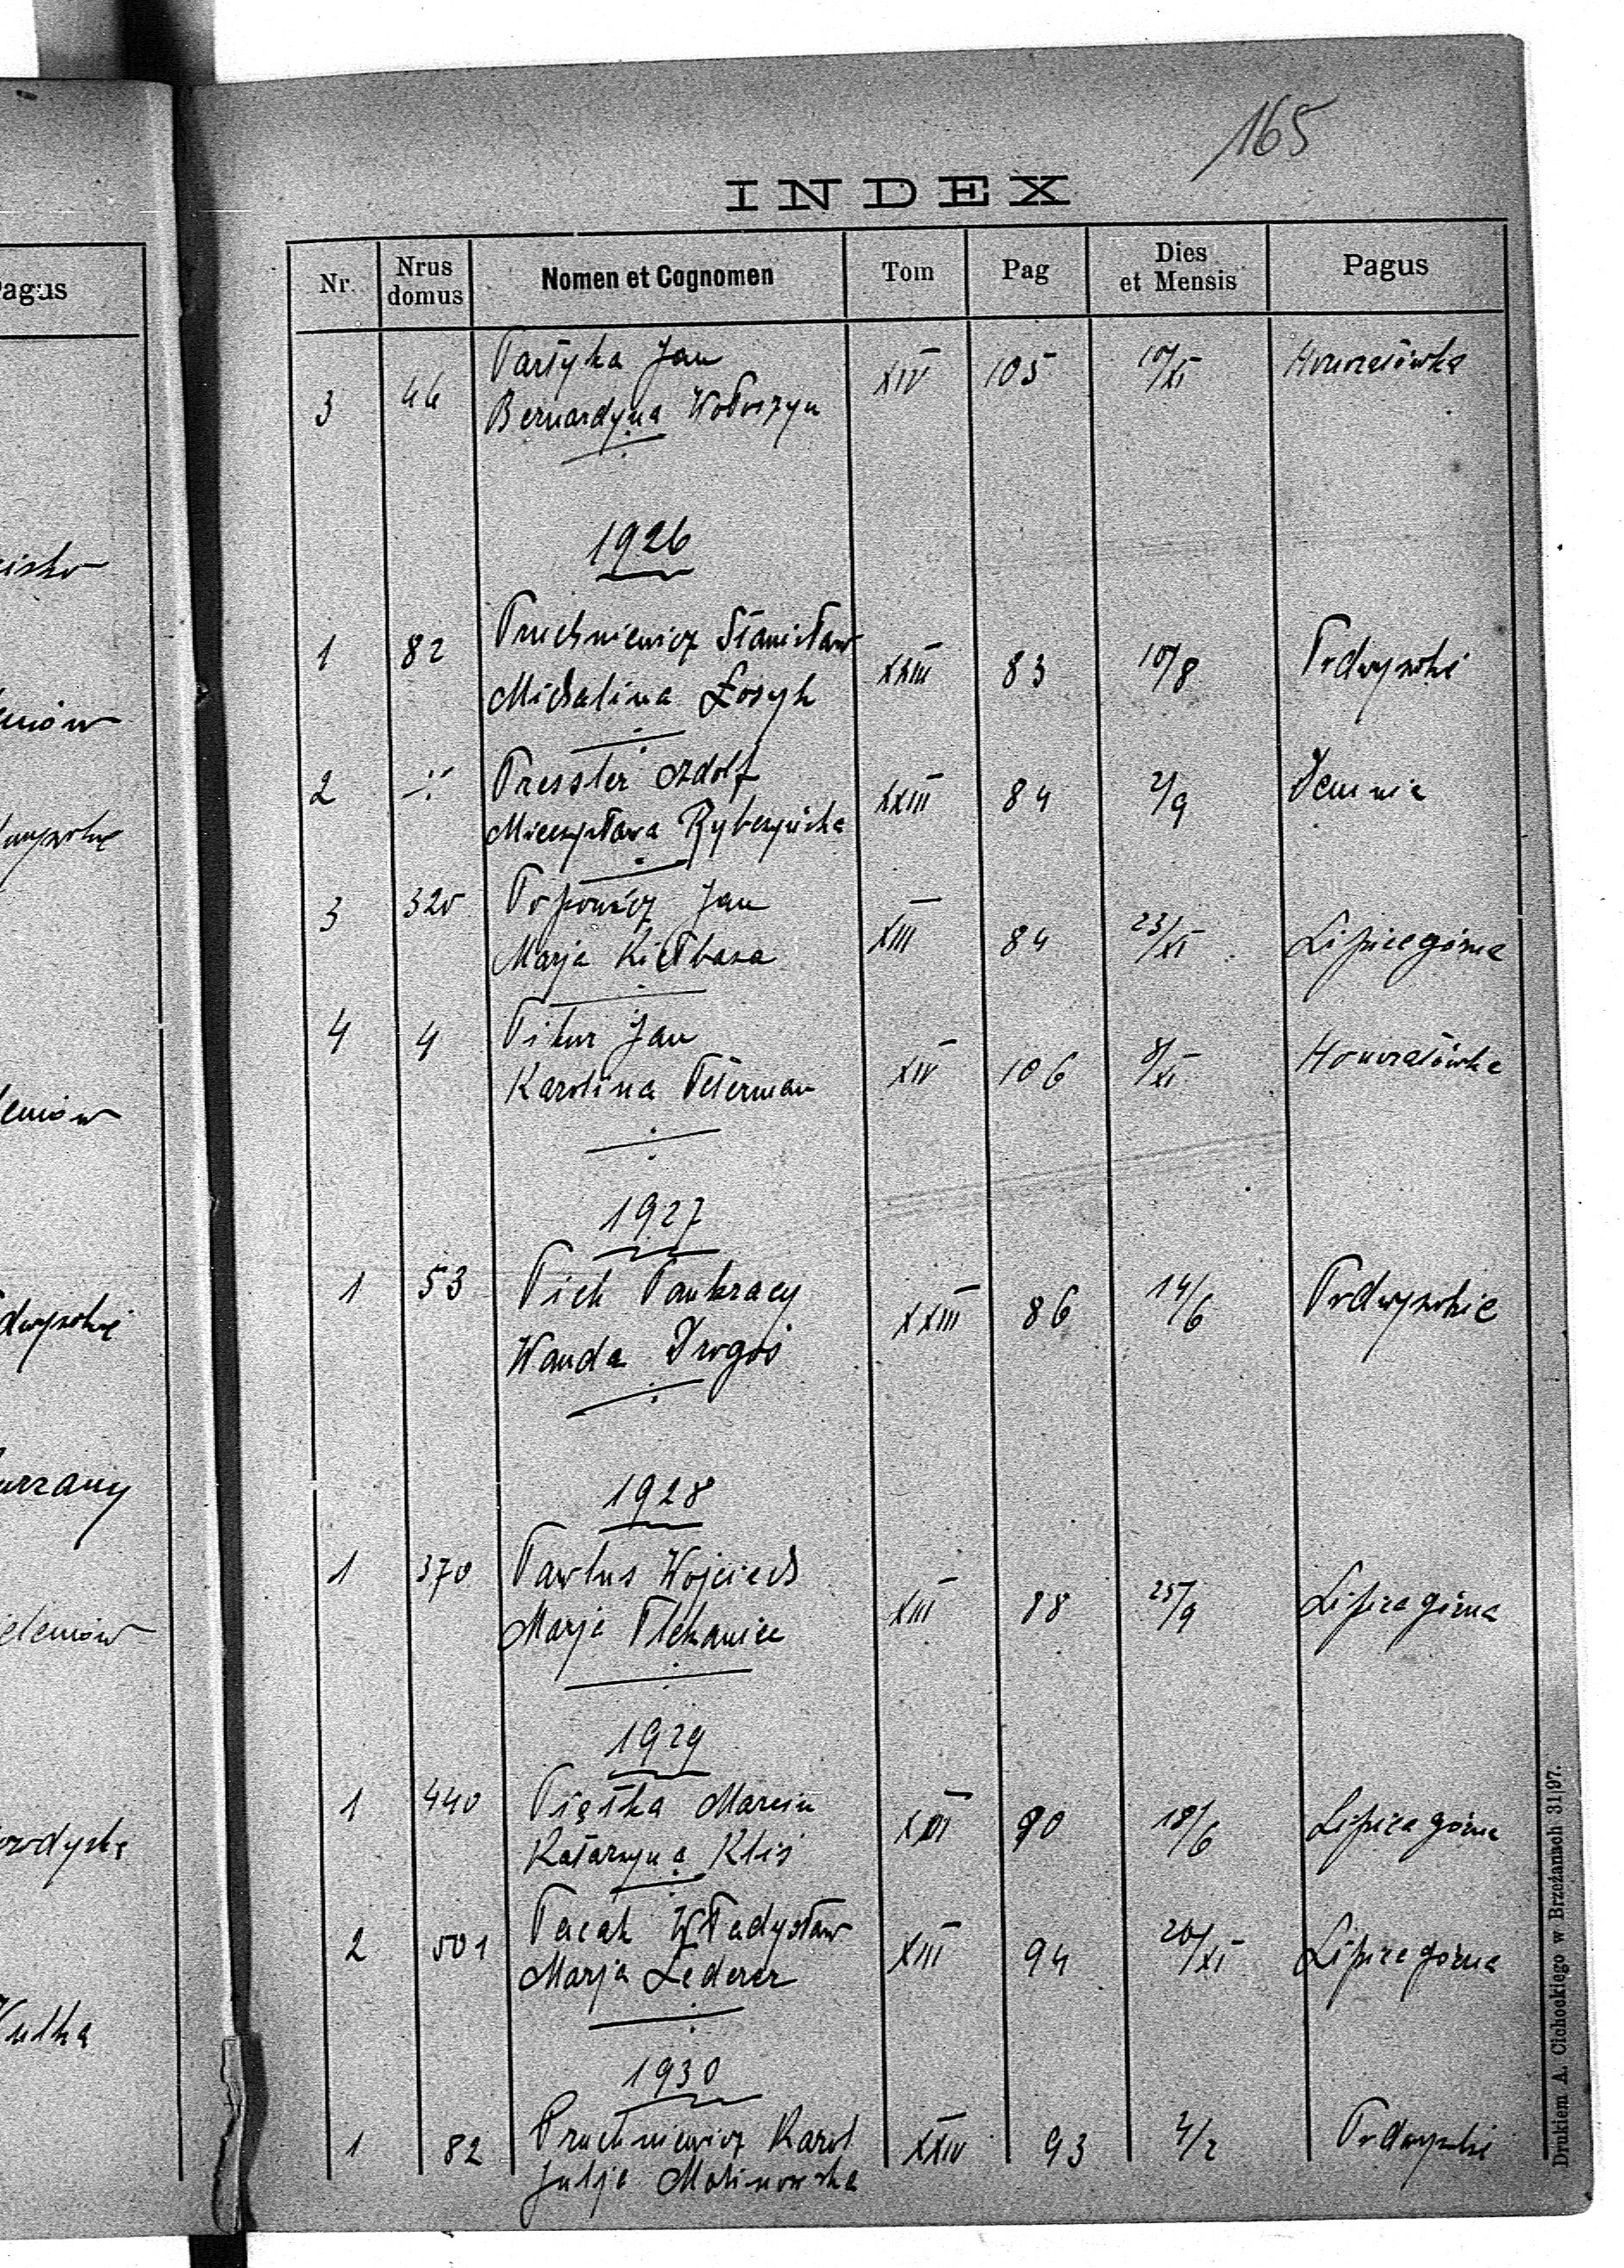 165
INDEX
Nr. Nrus domus Nomen et Cognomen Tom Pag Dies et Mensis Pagus
Partyka Jan
3 46 XIV 105 10/XI Honoratówka
Bernardyna Wołoszyn
1926
Pruchniewicz Stanisław
1 82 XXIII 83 10/8 Podwysokie
Michalina Łosyk
2 Pressler Adolf XXIII 84 2/9 Demnia
Mieczysława Rybczyńska
3 320 Popowicz Jan XIII 84 23/XI Lipica górna
Marja Kiełbasa
4 4 Pikur Jan XIV 106 8/XI Honoratówka
Karolina Peterman
1927
1 53 Pich Pankracy XXIII 86 14/6 Podwysokie
Wanda Drogoś
1928
1 370 Pawlus Wojciech XIII 88 25/9 Lipica górna
Marja Plekaniec
1929
1 440 Piętka Marcin XIII 90 18/6 Lipica górna
Katarzyna Kliś
2 501 Pacak Władysław XIII 94 20/XI Lipica górna
Marja Lederer
1930
1 82 Pruchniewicz Karol XXIV 93 4/2 Podwysokie
Julja Malinowska
Drukiem A. Cichockiego w Brzeżanach 31|97.
Pagus